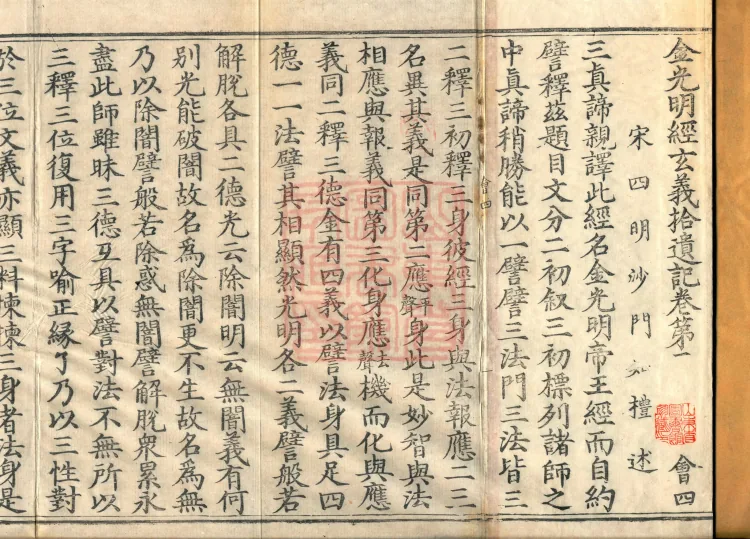 金光明經玄義拾遺記卷第一
會四
宋四明沙門知禮述
三眞諦親譯此經名金光明帝王經而自約
譬釋茲題目文分二初叙三初標列諸師之
中眞諦稍勝能以一譬譬三法門三法皆三
會四
二釋三初釋三身彼經三身與法報應二三
名異其義是同第二應平聲身此是妙智與法
相應與報義同第三化身應去聲機而化與應
義同二釋三德金有四義以譬法身具足四
德一一法譬其相顯然光明各二義譬般若
解脫各具二德光云除闇明云無闇義有何
別光能破闇故名為除闇更不生故名為無
乃以除闇譬般若除惑無闇譬解脫衆累永
盡此師雖昧三德互具以譬對法不無所以
三釋三位復用三字喻正緣了乃以三性對
於三位文義亦顯三料揀揀三身者法身是